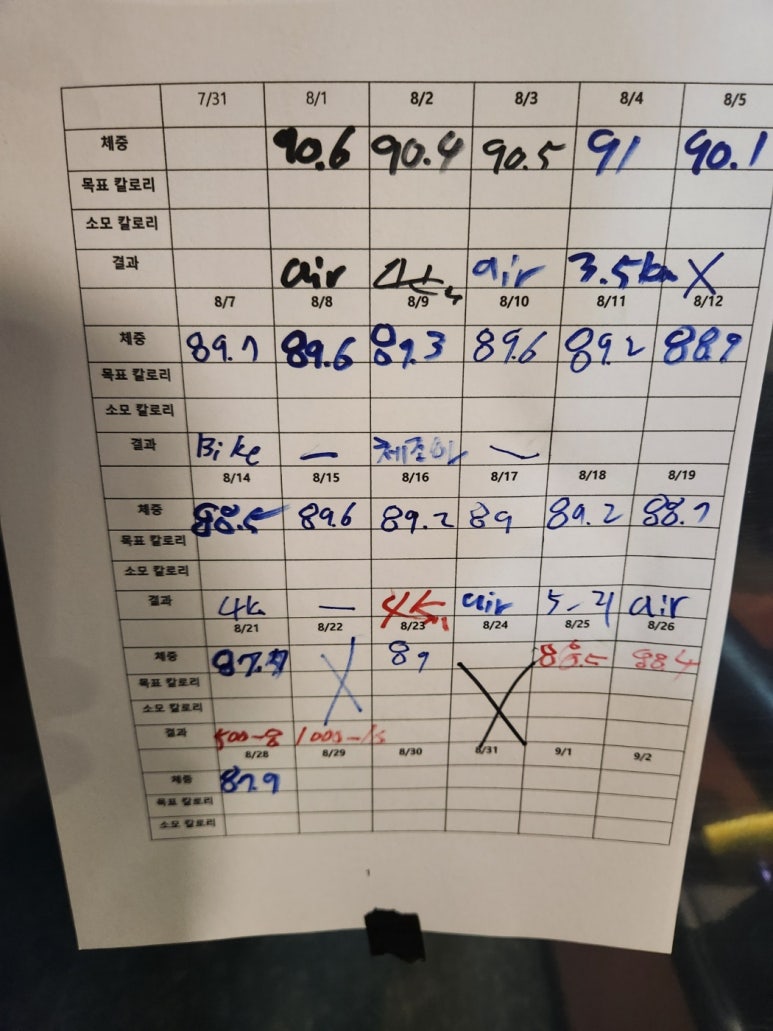 7/31 8/1 8/2 8/3 8/4 8/5
체중 90.6 90.4 90.5 91 90.1
목표 칼로리
소모 칼로리
결과 air air 3.5km X
8/7 8/8 8/9 8/10 8/11 8/12
체중 89.7 89.6 89.3 89.6 89.2 88.9
목표 칼로리
소모 칼로리
결과 Bike —
8/14 8/15 8/16 8/17 8/18 8/19
체중 88.5 89.6 89.2 89 89.2 88.7
목표 칼로리
소모 칼로리
결과 4k — air air
8/21 8/22 8/23 8/24 8/25 8/26
체중 X 89 88.5 88.4
목표 칼로리
소모 칼로리
결과
8/28 8/29 8/30 8/31 9/1 9/2
체중 87.9
목표 칼로리
소모 칼로리
1